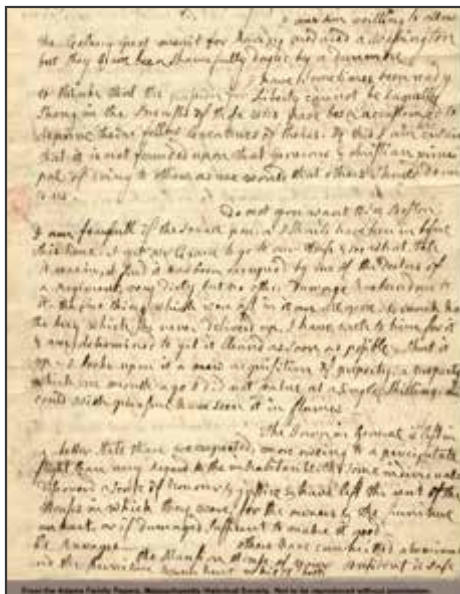 I am willing to allow
the Colony great merit for having produced a Washington
but they have been Shamefully duped by a Dunmore
I have sometimes been ready
to think that the passion for Liberty cannot be Equally
Strong in the Breasts of those who have been accustomed to
deprive their fellow Creatures of theirs. Of this I am certain
that it is not founded upon that generous & christian princi
pal of doing to others as we would that others should do un
to us.
Do not you want to see Boston
I am fearfull of the small pox, or I should have been in before
this time. I got Mr Crane to go to our House & see what state
it was in. I find it has been occupied by one of the Doctors of
a Regiment, very dirty but no other Damage has been done to
it. the few things which were left in it are all gone.
the key which he never deliverd up, I have wrote to him for it
& am determined to get it cleand as soon as possible & shut it
up. I look upon it a new acquisition of property, a property
which one month ago I did not value at a single Shilling, &
could with pleasure have seen it in flames.
The Town in General is left in
a better state than we expected, more oweing to a precipitate
flight than any regard to the inhabitants, tho some individuals
discoverd a sense of honour & justice & have left the rent of the
Houses in which they were, for the owners & the furniture
unhurt, or if damaged sufficent to make it good.
others have committed abominable
Ravages
the Mansion House of your President is safe
and the furniture unhurt
From the Adams Family Papers, Massachusetts Historical Society. Not to be reproduced without permission.